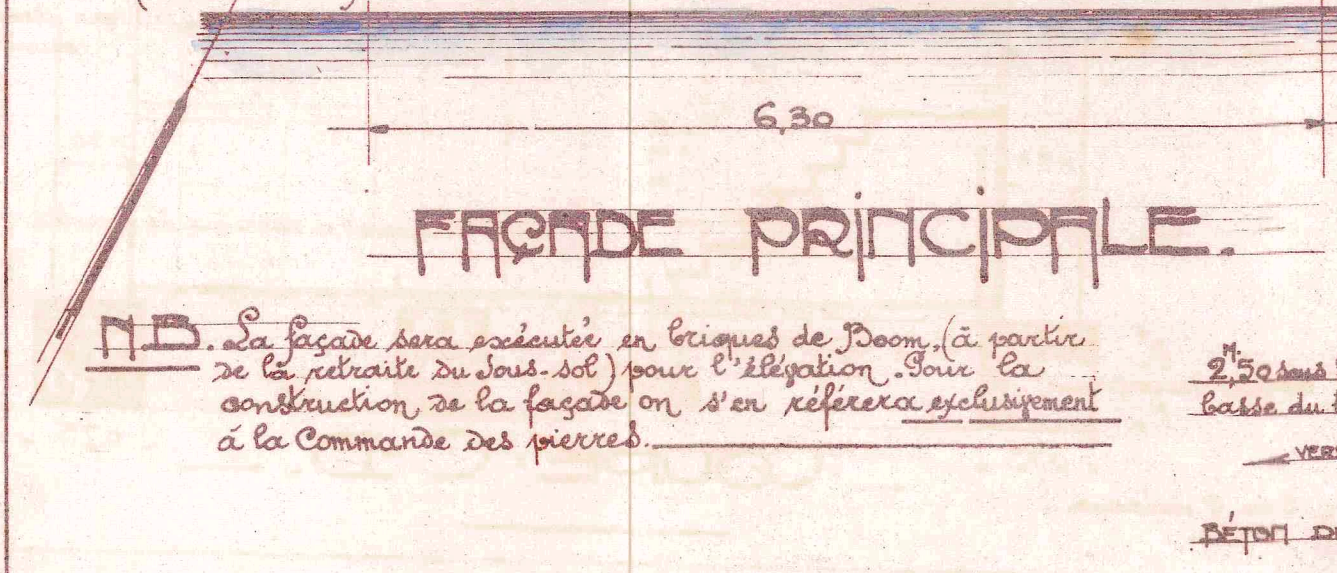 6,30
FAÇADE PRINCIPALE.
N.B. La façade sera exécutée en briques de Boom, (à partir
de la retraite du Sous-sol) pour l'élévation. Pour la
construction de la façade on s'en référera exclusivement
à la Commande des pierres.
2,50 M. sous
basse du
VERS
BÉTON